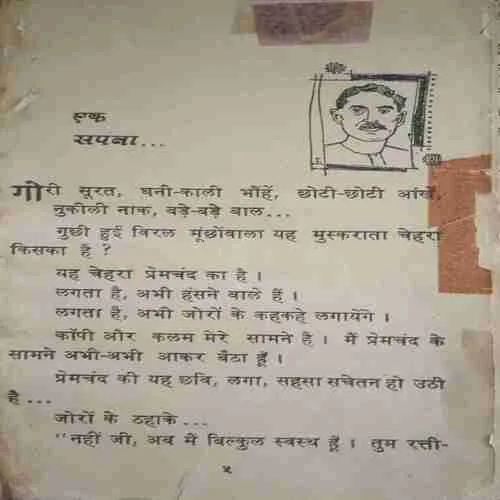 एक
सपना...
गोरी सूरत, घनी-काली भौंहें, छोटी-छोटी आंखें,
नुकीली नाक, बड़े-बड़े बाल...
गुछी हुई विरल मूंछोंवाला यह मुस्कराता चेहरा
किसका है ?
यह चेहरा प्रेमचंद का है ।
लगता है, अभी हंसने वाले हैं ।
लगता है, अभी जोरों के कहकहे लगायेंगे ।
कॉपी और कलम मेरे सामने हैं । मैं प्रेमचंद के
सामने अभी-अभी आकर बैठा हूँ ।
प्रेमचंद की यह छवि, लगा, सहसा सचेतन हो उठी
है...
जोरों के ठहाके...
"नहीं जी, अब मैं बिल्कुल स्वस्थ हूँ । तुम रत्ती-
५